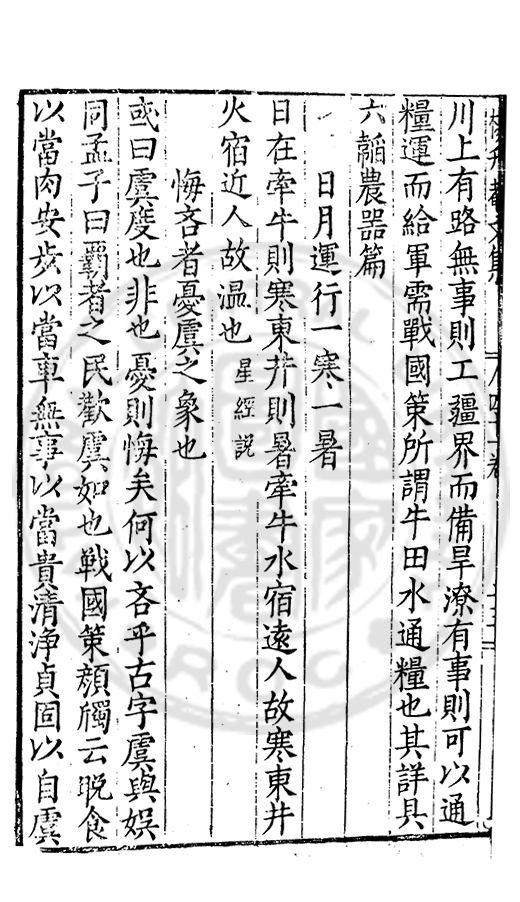 川上有路無事則工疆界而備旱潦有事則可以通
糧運而給軍需戰國策所謂牛田水通糧也其詳具
六韜農器篇
日月運行一寒一暑
日在牽牛則寒東井則暑牽牛水宿遠人故寒東井
火宿近人故温也星經説
悔吝者憂虞之象也
或曰虞度也非也憂則悔矣何以吝乎古字虞與娱
同孟子曰覇者之民歡虞如也戰國策顔斶云晚食
以當肉安步以當車無事以當貴清淨貞固以自虞